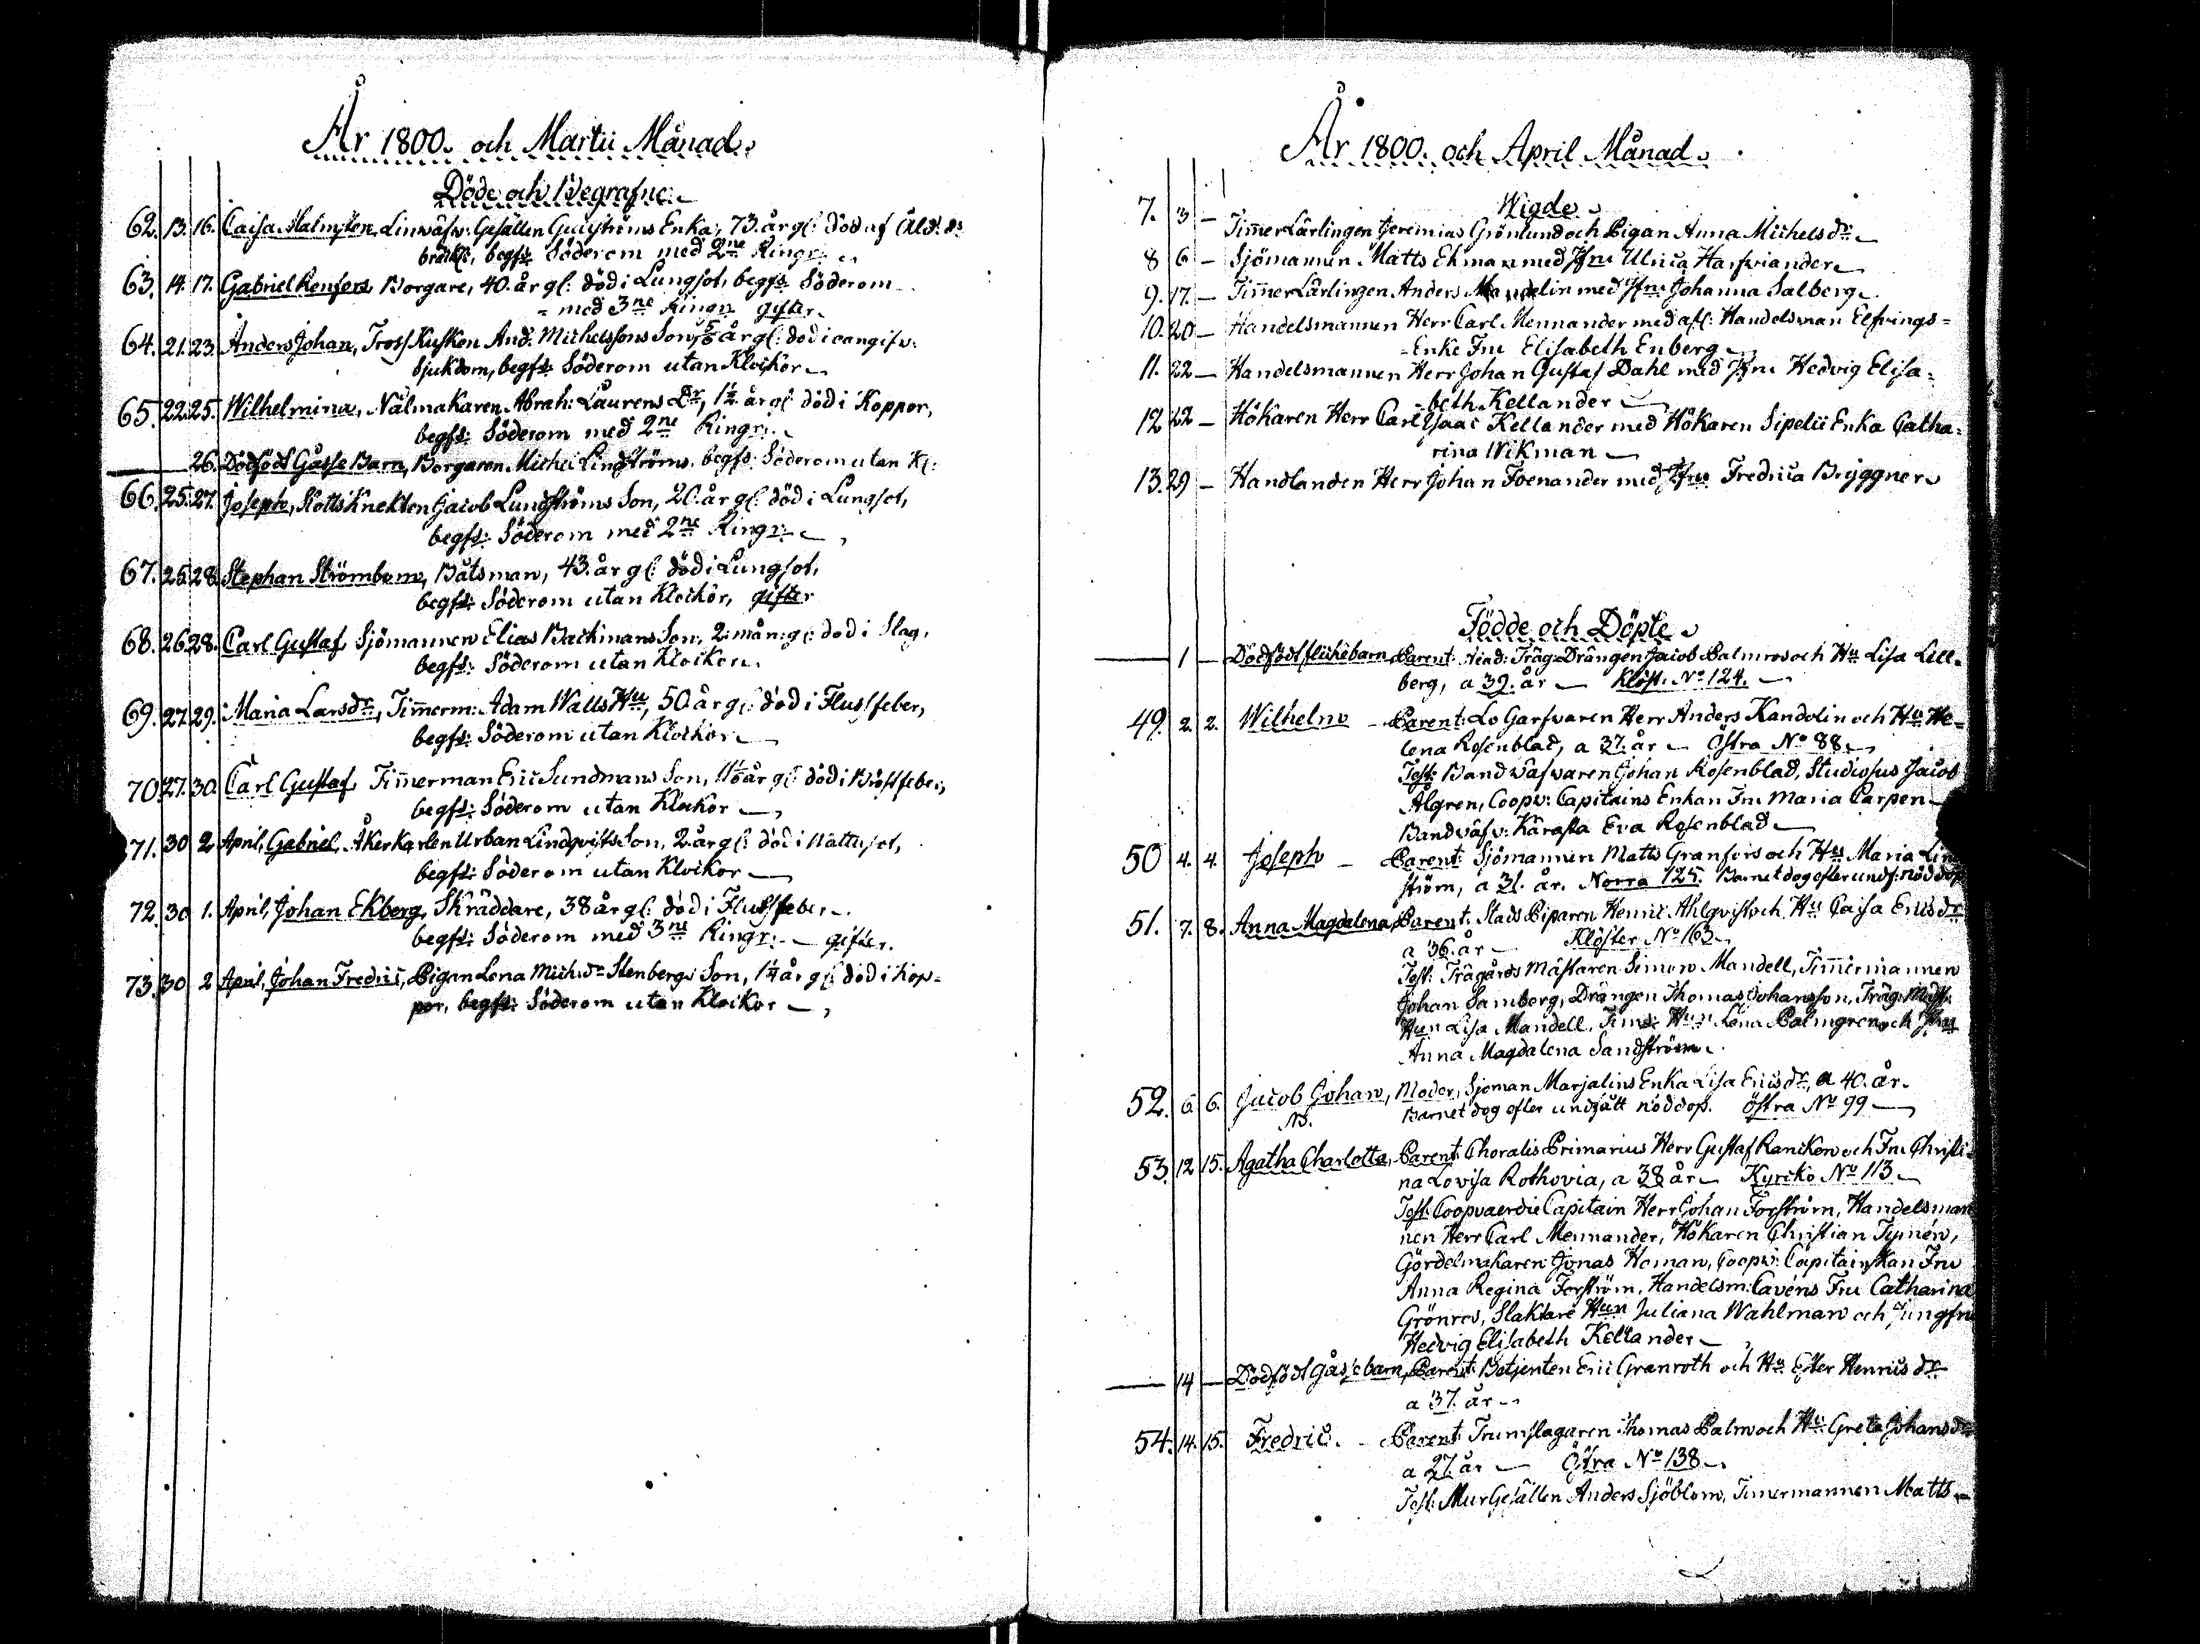 År 1800. och Martii Månad.
Döde och Begrafne.
62. 13. 16. Caisa Malmsten, Linwäfv: Gesällen Enka, 73. år gl: död af Åld: ds
bräckl:, begfs: Söderom med 2ne Ringr:
63. 14. 17. Gabriel Renfors, Borgare, 40. år gl: död i Lungsot, begfs: Söderom
med 3ne Ringn gifter.
64. 21. 23. Anders Johan, Tross Kusken And: Michelssons Son, 5/6 år gl: död i oangifv:
sjukdom, begfs: Söderom utan Klockor
65. 22. 25. Wilhelmina, Nålmakaren Abrah: Laurens Dr, 1 1/2 år gl: död i Koppor,
begfs: Söderom med 2ne Ringr:
26. Dödfödt Gåsse Barn, Borgaren Michel Lindströms. begfs: Söderom utan Kl:
66. 25. 27. Joseph, Slotts Knekten Jacob Lundströms Son, 20. år gl: död i Lungsot,
begfs: Söderom med 2ne Ringr:
67. 25. 28. Stephan Strömbom, Båtsman, 43. år gl: död i Lungsot,
begfs: Söderom utan Klockor, gifter
68. 26. 28. Carl Gustaf, Sjömannen Elias Backmans Son, 2. mån: gl: död i Slag,
begfs: Söderom utan Klockor.
69. 27. 29. Maria Larsdr, Timerm: Adam Walls Hu, 50 år gl: död i Flussfeber,
begfs: Söderom utan Klockor
70. 27. 30. Carl Gustaf, Timerman Eric Sundmans Son, 1 1/6 år gl: död i Bröstfeber,
begfs: Söderom utan Klockor
71. 30 2 April, Gabriel, Åkerkarlen Urban Lindqvists Son, 2 år gl: död i Wattusot,
begfs: Söderom utan Klockor
72. 30 1. April, Johan Ekberg, Skräddare, 38 år gl: död i Flussfeber
begfs: Söderom med 3ne Ringr: gifter.
73. 30 2 April, Johan Fredric, Pigan Lena Mich:dr Stenbergs Son, 1 1/4 år gl: död i Kop=
por, begfs: Söderom utan Klockor
År 1800. och April Månad.
Wigde.
7. 3 — Timer Lärlingen Jeremias Grönlund och Pigan Anna Michelsdr
8 6 — Sjömannen Matts Ekman med Jfru Ulrica Harfviander
9. 17. — Timer Lärlingen Anders Mandelin med Jfru Johanna Salberg
10. 20 — Handelsmannen Herr Carl Mennander med afl: Handelsman Elfvings=
Enke Fru Elisabeth Enberg
11. 22 — Handelsmannen Herr Johan Gustaf Dahl med Jfru Hedvig Elisa=
beth Kellander
12 22 — Hökaren Herr Carl Isaac Kellander med Hökaren Sipelii Enka Catha=
rina Wikman
13. 29 — Handlanden Herr Johan Foenander med Jfru Fredrica Bryggner
Födde och Döpte.
1 — Dödfödt flickebarn, Parent: Acad: Träg: Drängen Jacob Palmros och Hu Lisa Lill=
berg, a 39. år — Klöst: No 124.
49. 2. 2. Wilhelm — Parent: Lo Garfvaren Herr Anders Kandolin och Hu He=
lena Rosenblad, a 37. år — Östra No 88.
Test: Bandwäfvaren Johan Rosenblad, Studiosus Jacob
Ålgren, Coopv: Capitains Enkan Fru Maria Carpen
Bandväfv: Kärasta Eva Rosenblad
50 4. 4. Joseph — Parent: Sjömannen Matts Granfors och Hus Maria Lin
ström, a 31. år. Norra 125. Barnet dog efter undf: nöddop
51. 7. 8. Anna Magdalena, Parent: Stads Piparen Henric Ahlqvist och Hu Caisa Ericsdr
a 36. år — Klöster No 163
Test: Trägårds Mästaren Simon Mandell, Timermannen
Johan Samberg, Drängen Thomas Johansson, Träg: Mäst:
Hun Lisa Mandell, Timer: Hun Lena Palmgren och Jfru
Anna Magdalena Sandström.
52. 6. 6. Jacob Johan, Moder, Sjöman Marjalins Enka Lisa Ericsdr, a 40. år.
NB. Barnet dog efter undfått nöddop. Östra No 99
53. 12 15. Agatha Charlotta, Parent: Choralis Primarius Herr Gustaf Ranckén och Fru Christi=
na Lovisa Rothovia, a 38 år — Kyrcko No 113
Test: Coopvaerdie Capitain Herr Johan Forström, Handelsman
nen Herr Carl Mennander, Hökaren Christian Tymén,
Gördelmakaren Jonas Homan, Coopv: Capitainskan Fru
Anna Regina Forström, Handelsm: Cavéns Fru Catharina
Grönros, Slaktare Hun Juliana Wahlman och Jungfru
Hedvig Elisabeth Kellander
14 — Dödfödt gåssebarn, Parent: Betjenten Eric Granroth och Hu Ester Henricsdr
a 37. år
54. 14. 15. Fredric. — Parent: Trumslagaren Thomas Palm och Hu Greta Johansdr
a 27. år — Östra No 138
Test: Mur Gesällen Anders Sjöblom, Timermannen Matts